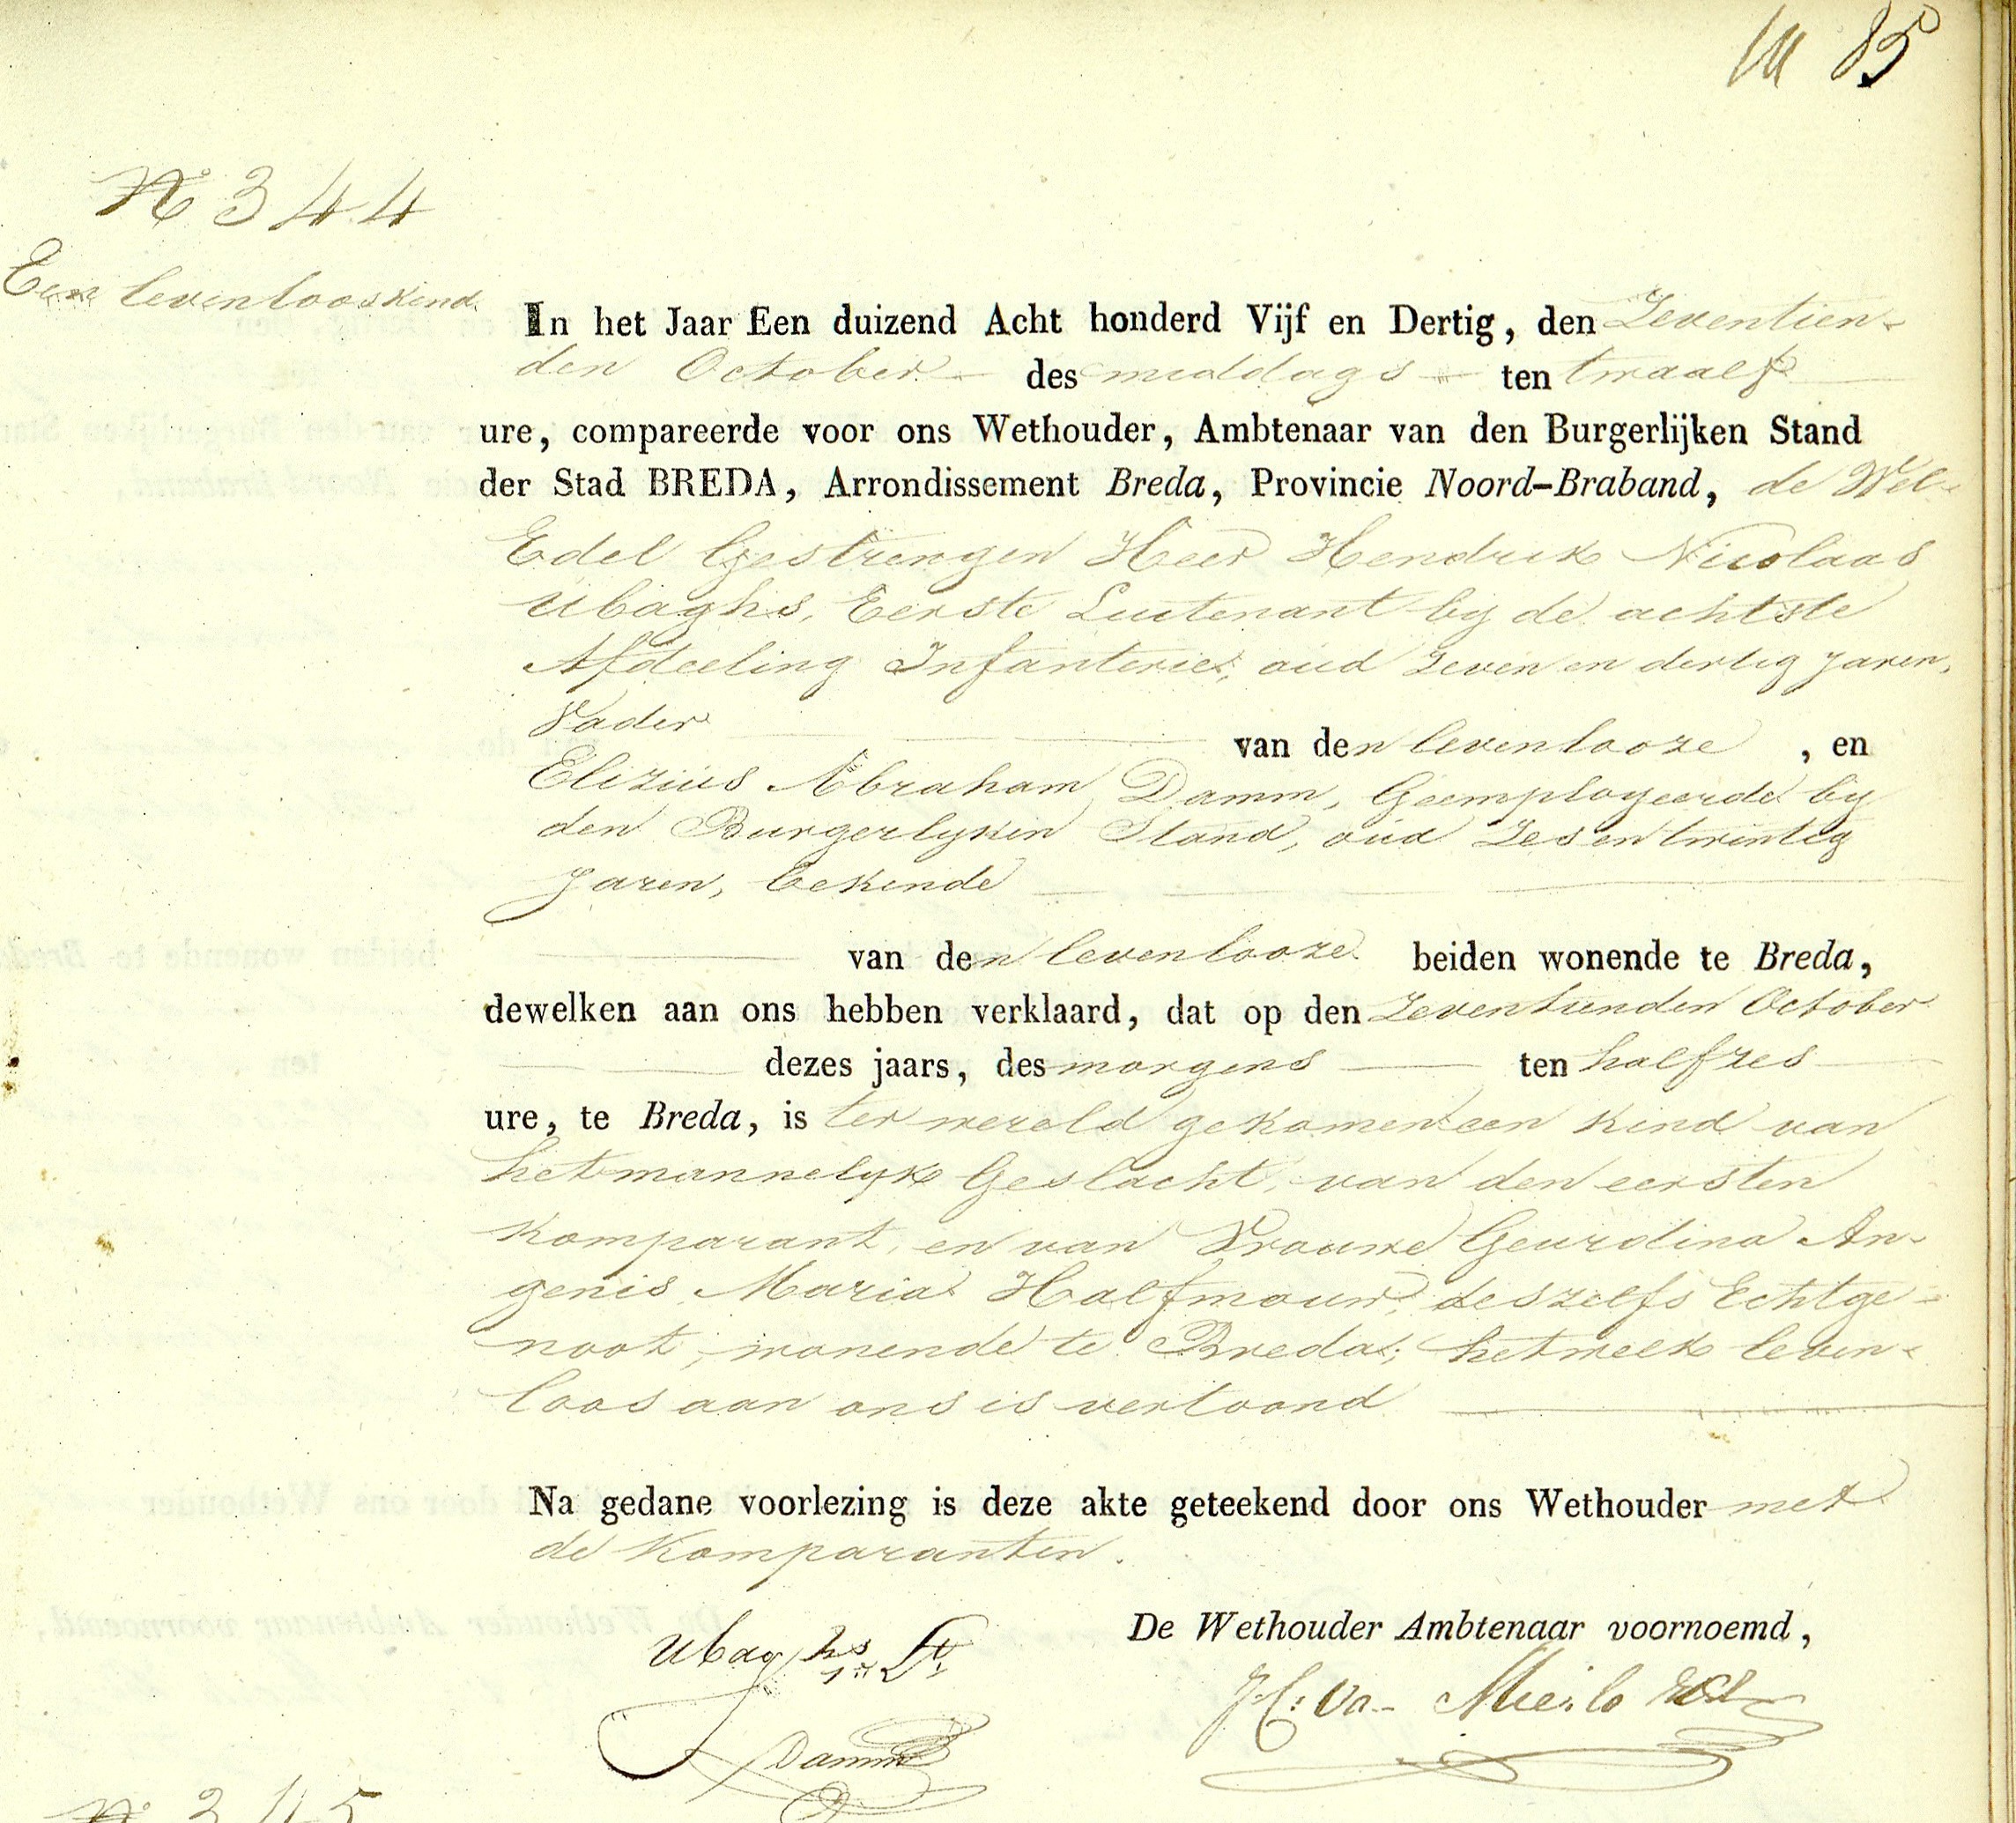 85
No 344
Een levenlooskind.
In het Jaar Een duizend Acht honderd Vijf en Dertig, den Zeventien-
den October des middags ten twaalf
ure, compareerde voor ons Wethouder, Ambtenaar van den Burgerlijken Stand
der Stad BREDA, Arrondissement Breda, Provincie Noord-Braband, de Wel-
Edel Gestrengen Heer Hendrik Nicolaas
Ubaghs, Eerste Luitenant by de achtste
Afdeeling Infanterie, oud Zeven en dertig Jaren,
Vader van den levenlooze, en
Elizius Abraham Damm, Geemployeerde by
den Burgerlyken Stand, oud Zes en twintig
Jaren, bekende
van den levenlooze beiden wonende te Breda,
dewelken aan ons hebben verklaard, dat op den Zeventienden October
dezes jaars, des morgens ten half zes
ure, te Breda, is ter wereld gekomen een kind van
het mannelyk Geslacht, van den eersten
Komparant, en van Vrouwe Geurdina An-
genis Maria Halfmouw, deszelfs Echtge-
noot, wonende te Breda; hetwelk leven-
loos aan ons is vertoond
Na gedane voorlezing is deze akte geteekend door ons Wethouder met
de Komparanten.
De Wethouder Ambtenaar voornoemd,
Ubaghs 1e Lt
Damm
No 345